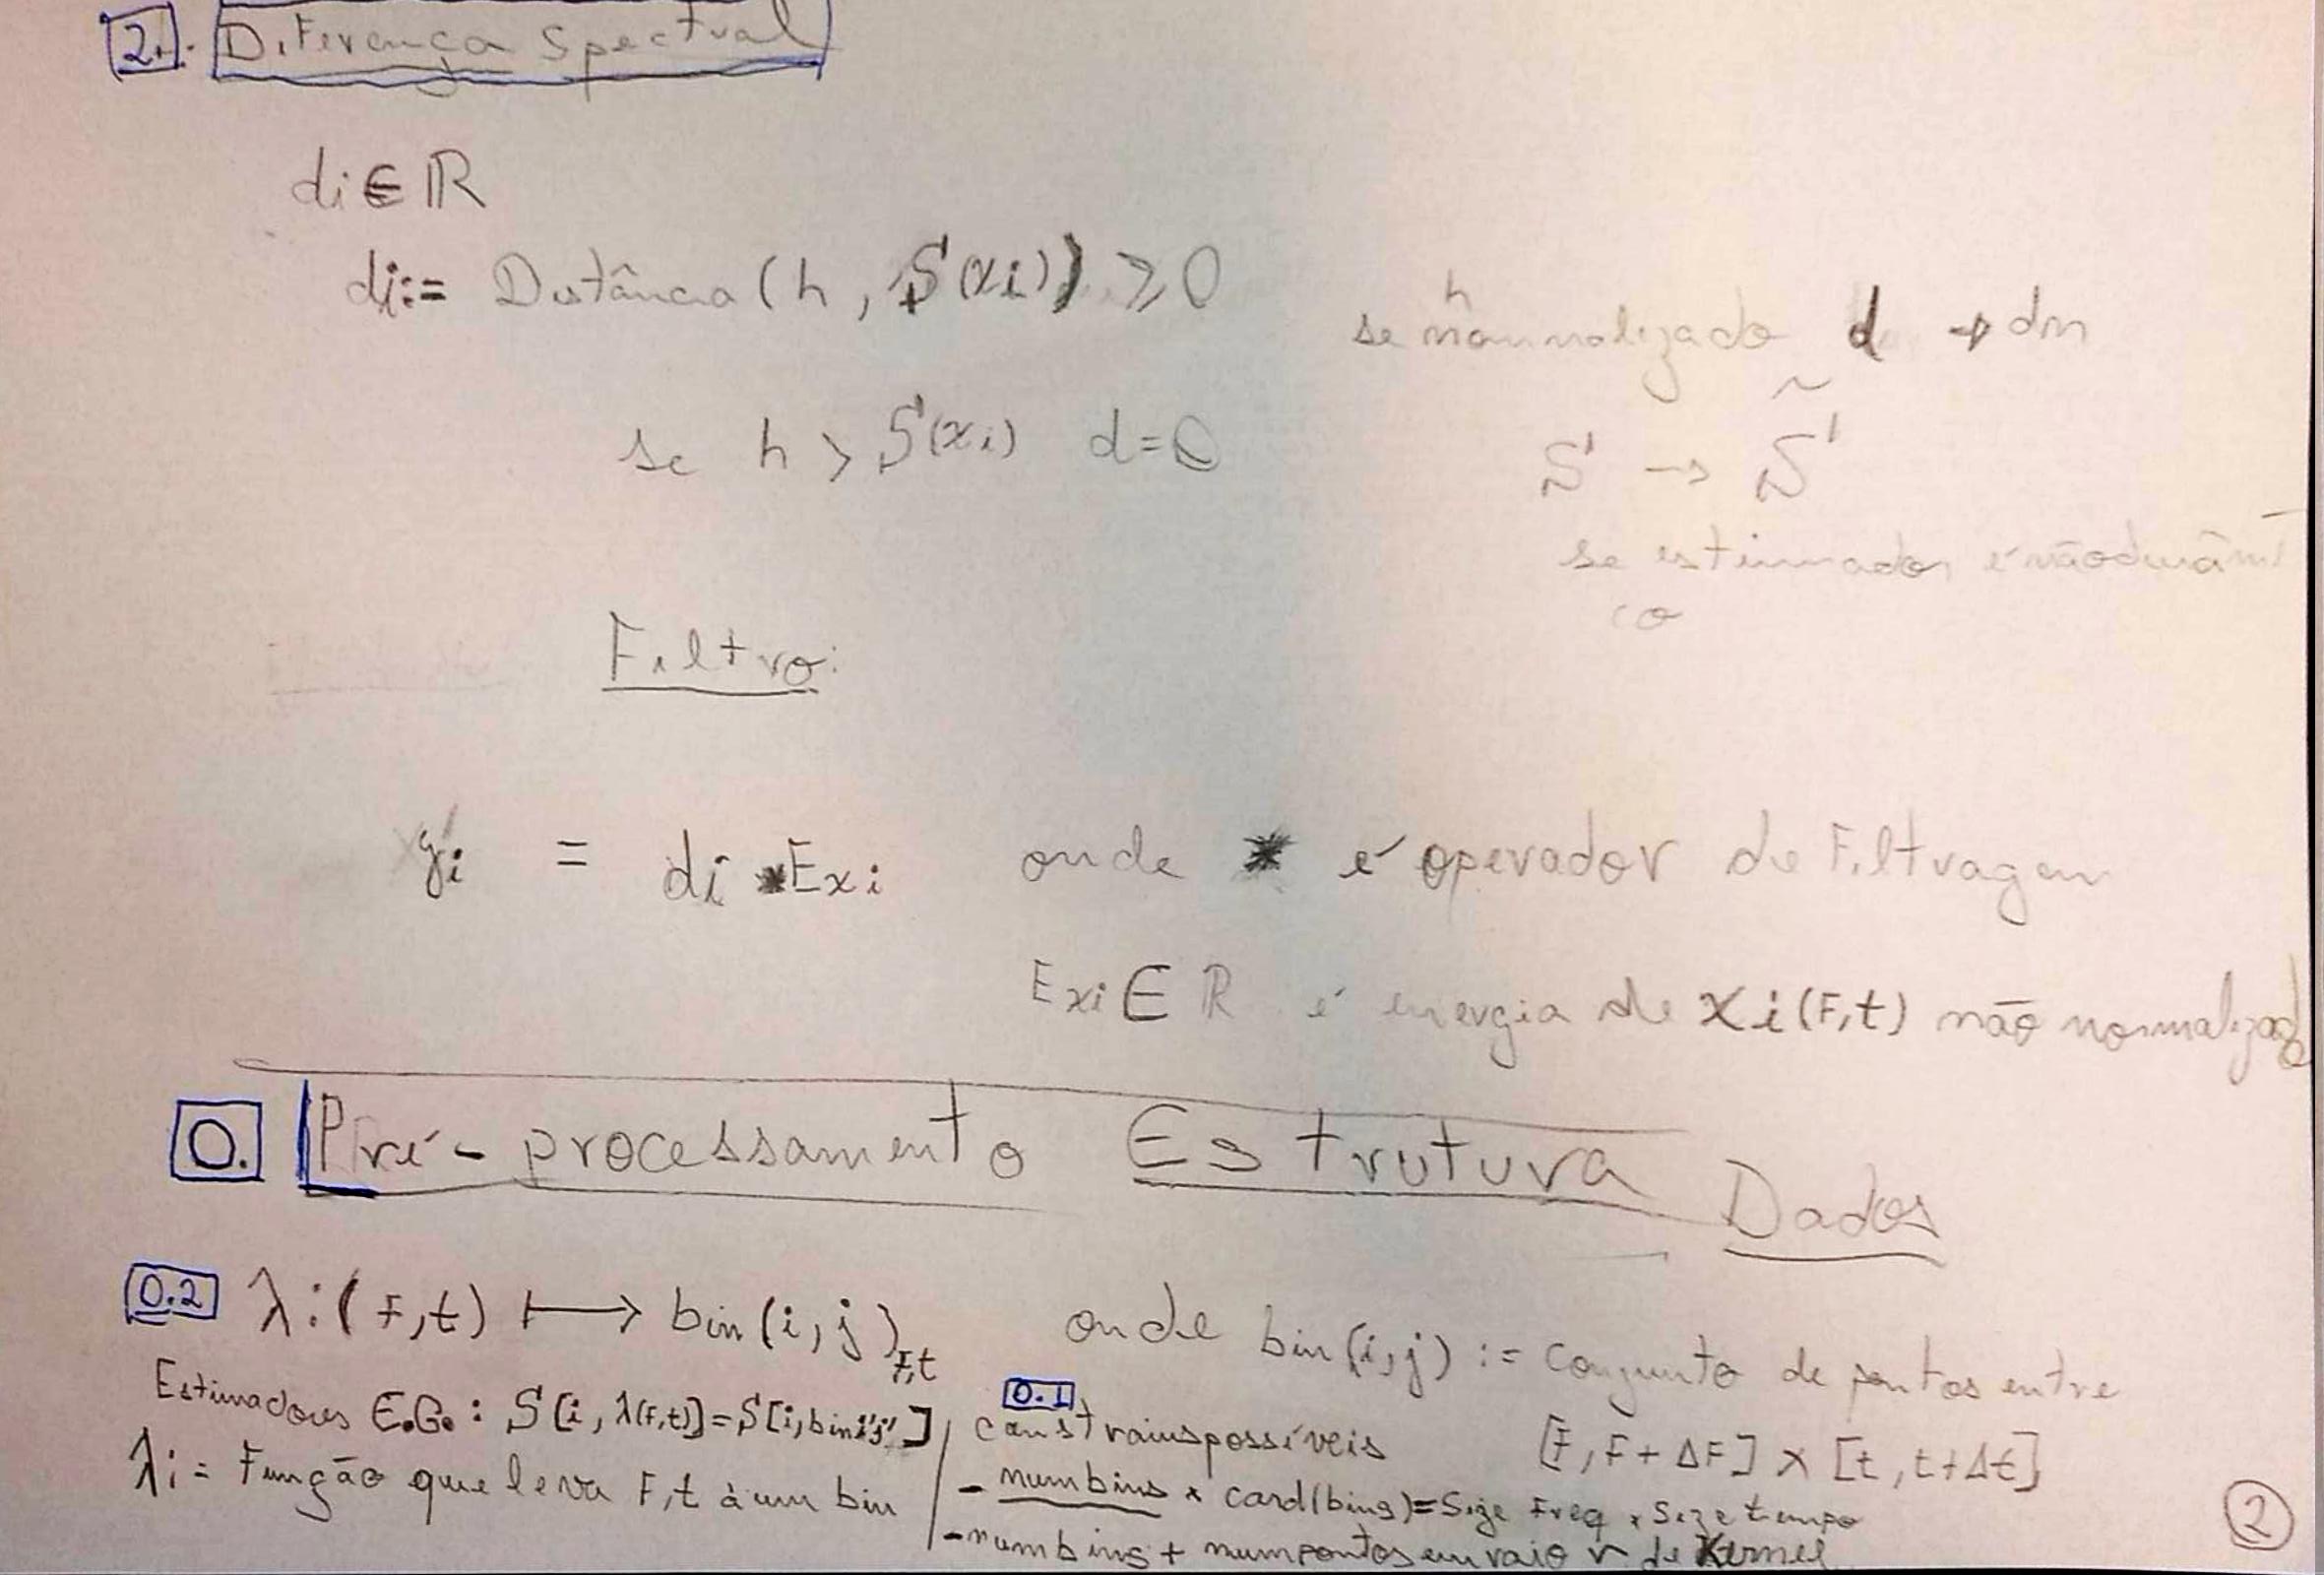 2. Diferença Spectral
di ∈ ℝ
di := Distância (h, S(xi)) ≥ 0
se h normalizado d → dn
se h > S(xi) d=0
S → S̃
se estimador é não dinâmi
co
Filtro:
yi = di * Exi onde * é operador de Filtragem
Exi ∈ ℝ é energia de Xi(F,t) não normalizado
0. Pré-processamento Estrutura Dados
0.2 λ:(F,t) ⟼ bin(i,j)F,t onde bin(i,j) := Conjunto de pontos entre
[F, F+ΔF] x [t, t+Δt]
Estimadores E.G.: S[i, λ(F,t)]=S[i,bin i'j']
λ:= Função que leva F,t à um bin
0.1
possíveis
- numbins * card(bins)=Size Freq * Size tempo
- numbins + numpontos em raio r de Kernel
2